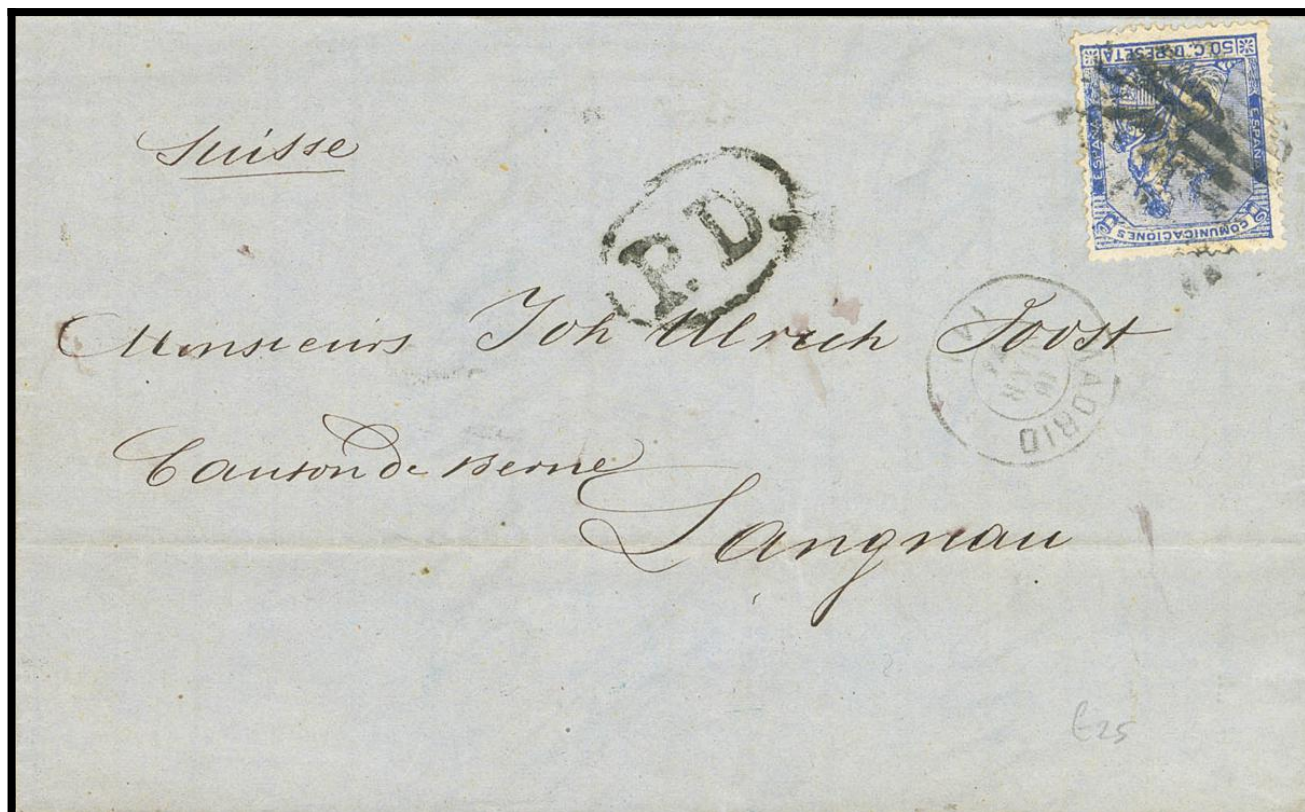 50 C. D PESETA
ESPAÑA
ESPAÑA
COMUNICACIONES
Suisse
P. D.
Monsieurs Joh Ulrich Joost
MADRID
16
Canton de Berne
Langnau
£25